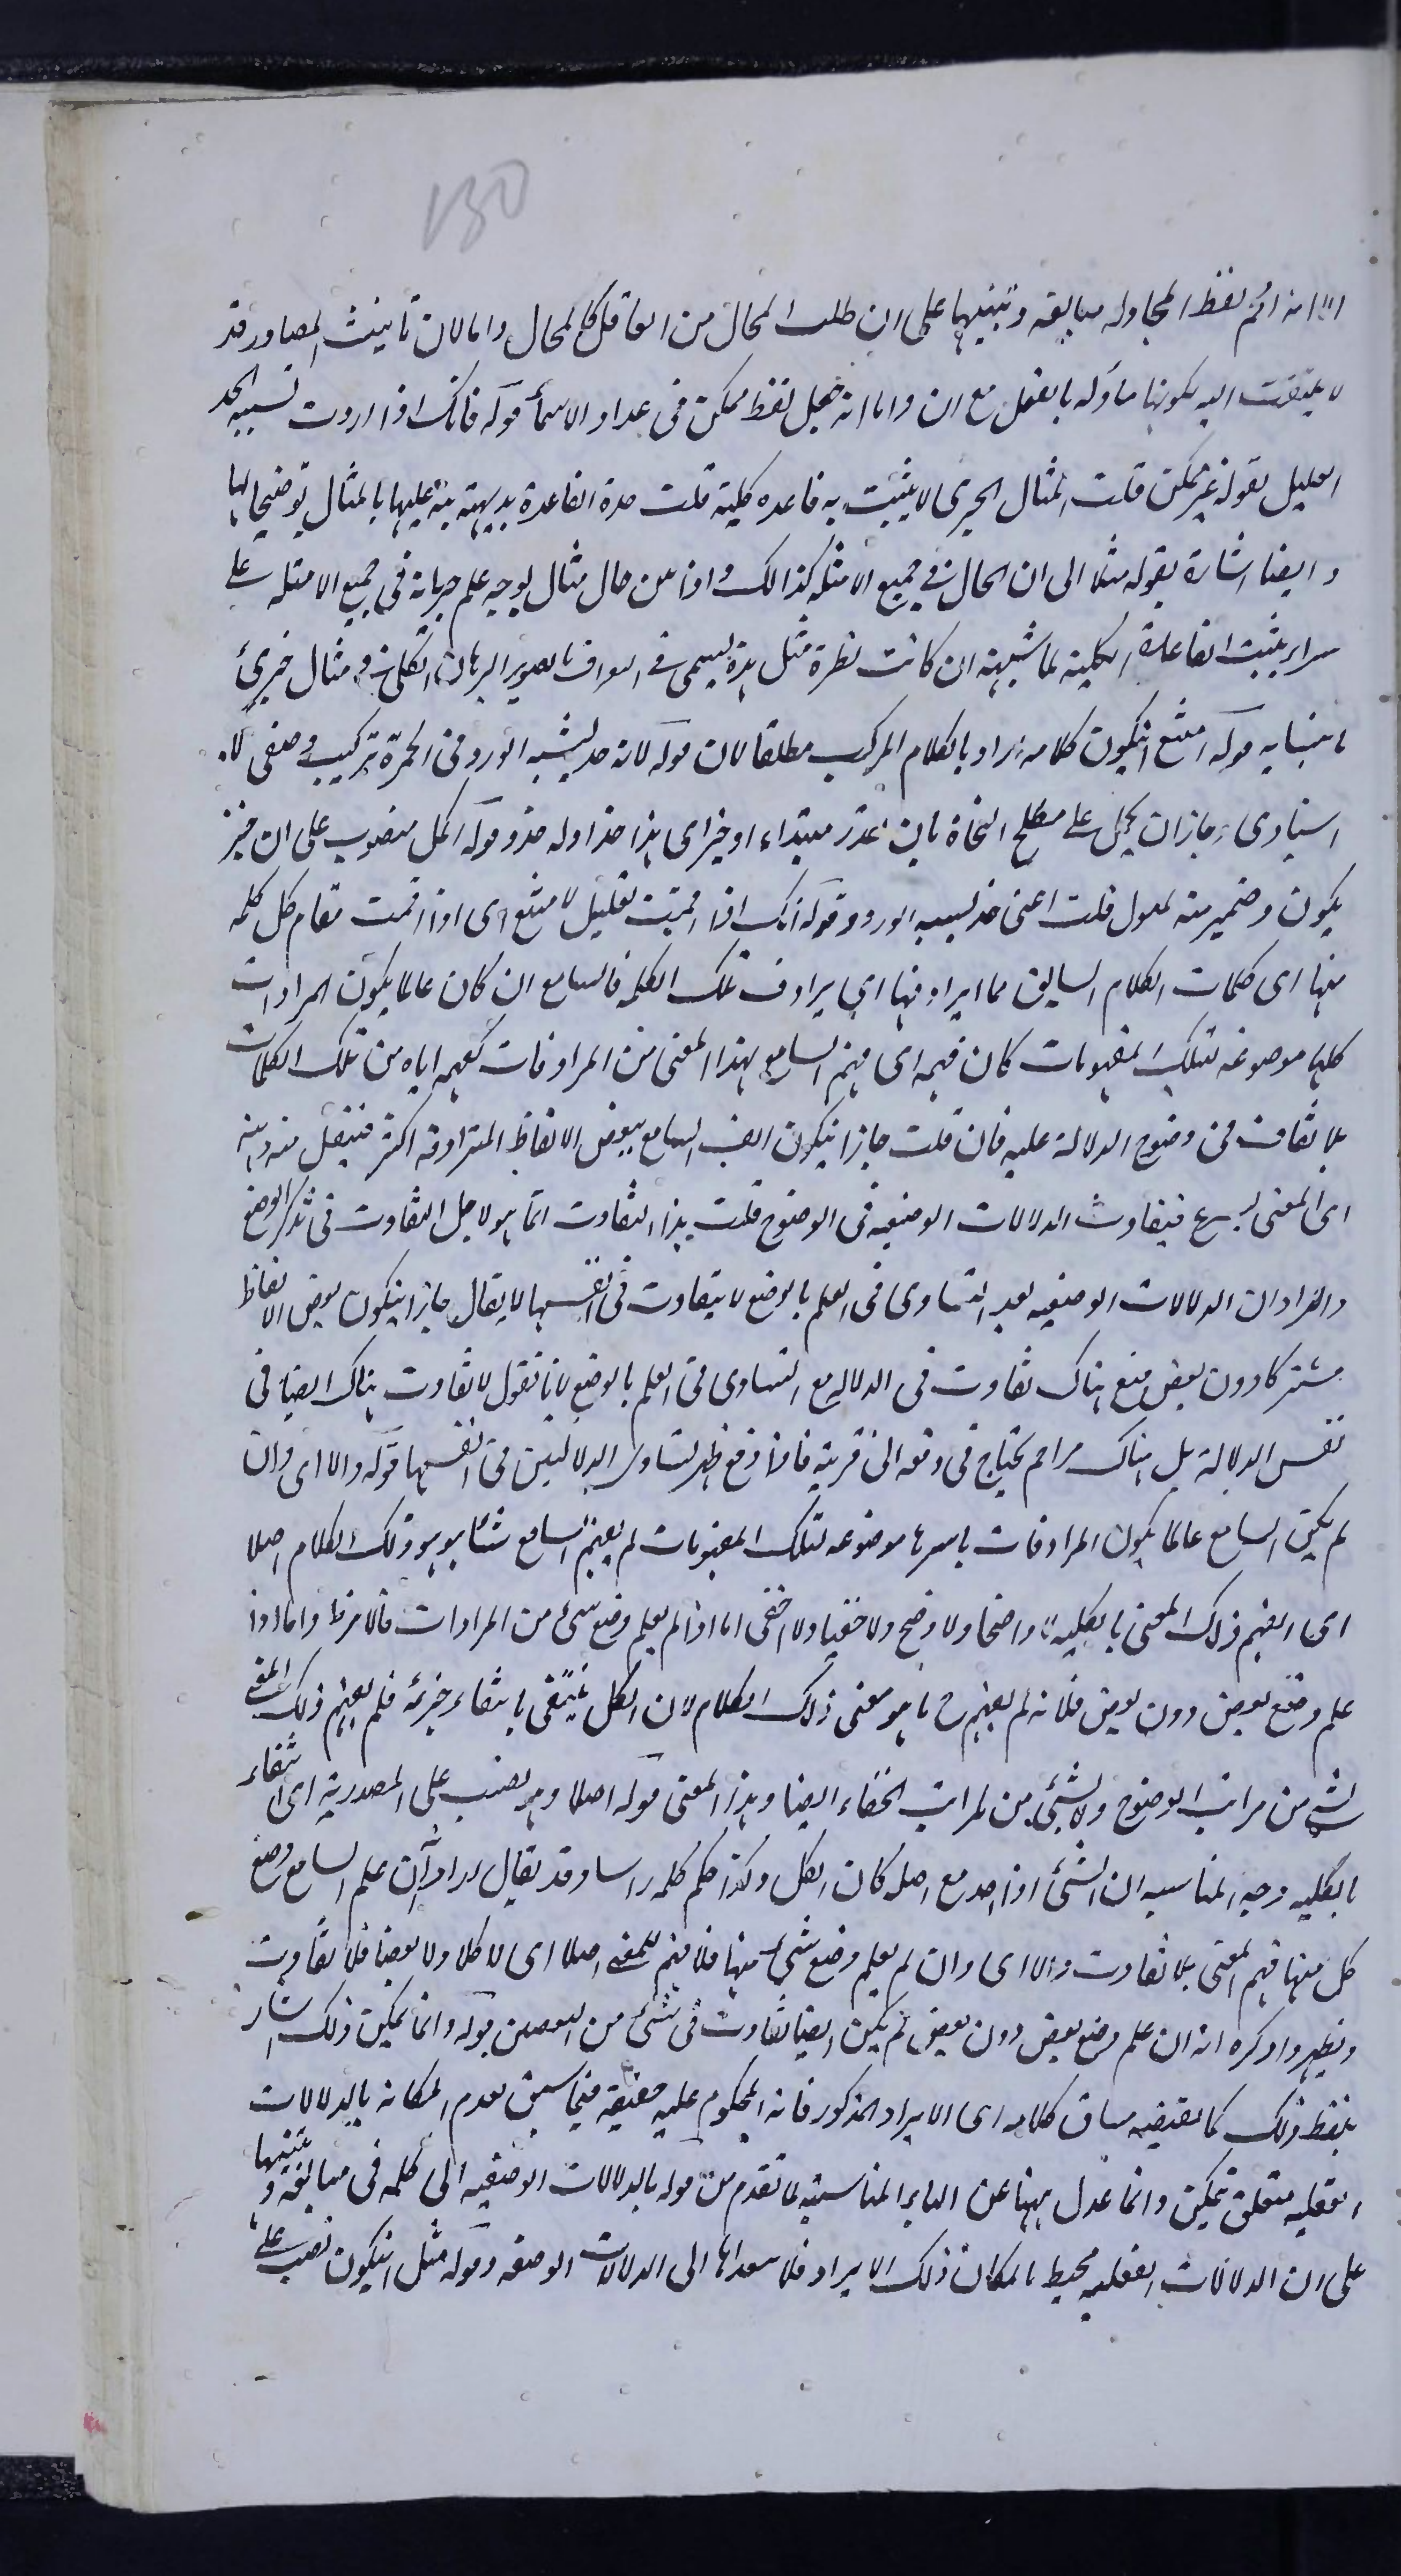 130
الا انه اقحم لفظ المحاوله مبالغه وتنبيها على ان طلب المحال من العاقل كالمحال واما لان تانيث المصادر قد
لا يلتفت اليه لكونها مأوله بالفعل مع ان واما انه جعل لفظ ممكن فى عداد الاسماء قوله فانك اذا اردت تشبيه الخد
العليل بقوله غير ممكن قلت المثال الجزئى لا يثبت به قاعده كلية قلت هذه القاعدة بديهية نبه عليها بالمثال توضيحا لها
وايضا اشارة بقوله مثلا الى ان الحال فى جميع الامثله كذالك واذا من حال مثال لوجه علم جريانه فى جميع الامثله على
يثبت القاعدة الكلية لما شبهة ان كانت نظرة مثل هذه يسمى فى بصوير البرهان الكلى فى مثال جزئى
قوله امتنع ان يكون كلامه اراد بالكلام المركب مطلقا لان قوله لانه خد يشبه الورد فى الحمرة تركيب وصفى لا
اسنادى وجاز ان يحمل على مصطلح النحاة بان يقدر مبتداء او خبر اى هذا خد اوله خد وقوله اكمل منصوب على ان خبر
يكون وضمير منه لمدلول قلت اعنى خد يشبه الورد وقوله لانك اذا اقمت تعليل لا متنع اى اذا اقمت مقام كل كلمه
منها اى كلمات الكلام السابق مما يرادفها اى يرادف تلك الكلمه فالسامع ان كان عالما بكون المرادفات
كلها موضوعه لتلك المفهومات كان فهمه اى فهم السامع لهذا المعنى من المرادفات كفهمه اياه من تلك الكلمات
بلا تفاوت فى وضوح الدلالة عليه فان قلت جاز ان يكون الف السامع ببعض الالفاظ المترادفه اكثر فينتقل منه ذهنه
الى المعنى اسرع فيتفاوت الدلالات الوضعيه فى الوضوح قلت هذا التفاوت انما هو لاجل التفاوت فى تذكر الوضع
والمراد ان الدلالات الوضعيه بعد التساوى فى العلم بالوضع لا يتفاوت فى انفسها لا يقال جاز ان يكون بعض الالفاظ
مشتركا دون بعض فمع هناك تفاوت فى الدلاله مع التساوى فى العلم بالوضع لانا نقول لا تفاوت هناك ايضا فى
نفس الدلالة بل هناك مزاحم يحتاج فى دفعه الى قرينة فاذا دفع ظهر تساوى الدلالتين فى انفسها قوله والا اى وان
لم يكن السامع عالما بكون المرادفات باسرها موضوعه لتلك المفهومات لم يفهم السامع شيئا هو وذلك الكلام اصلا
اى لم يفهم ذلك المعنى بالكليه لا واضحا ولا اوضح ولا خفيا ولا اخفى اما اذا لم يعلم وضع شىء من المرادفات فالامر ظ واما اذا
علم وضع بعض دون بعض فلانه لم يفهم ح ما هو معنى ذلك الكلام لان الكل ينتفى بانتفاء جزئه فلم يفهم ذلك المعنى
لشئ من مراتب الوضوح ولا بشئ من مراتب الخفاء ايضا وهذا المعنى قوله اصلا وهو نصب على المصدرية اى انتفاء
بالكليه وجه المناسبه ان الشئ اذا اخذ مع اصله كان الكل وكذا حكم كلمه راسا وقد يقال اراد ان علم السامع وضع
كل منها فهم المعنى بلا تفاوت والا اى وان لم يعلم وضع شئ منها فلا فهم للمعنى اصلا اى لا كلا ولا بعضا فلا تفاوت
ويظهر واذكره انه ان علم وضع بعض دون بعض لم يكن ايضا تفاوت فى شئ من البعضين قوله وانما يمكن ذلك اشار
بلفظ ذلك كما يقتضيه سياق كلامه اى الايراد المذكور فانه المحكوم عليه حقيقة فيما سبق بعدم امكانه بالدلالات
العقليه متعلق بيمكن وانما عدل ههنا عن المناسبة لما تقدم من قوله بالدلالات الوضعيه الى كلمه فى مبالغة وتنبيها
على ان الدلالات العقليه محيط بامكان ذلك الايراد فلا الى الدلالات الوضعيه وقوله مثل ان يكون نصب على